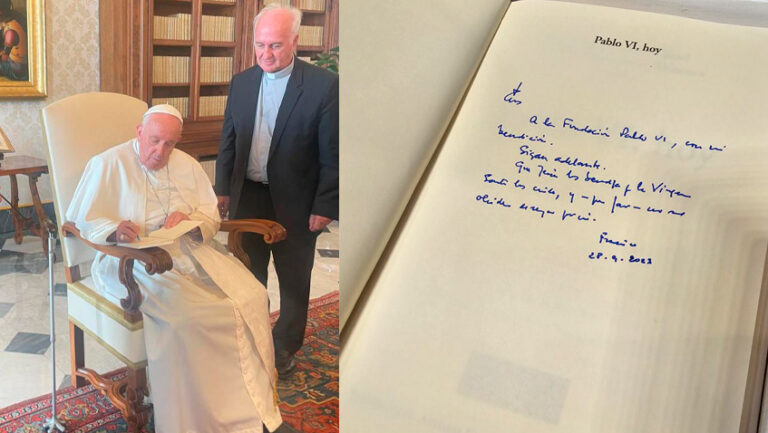 Pablo VI, hoy
A la Fundación Pablo VI, con mi
bendición.
Sigan adelante.
Que Jesús los bendiga y la Virgen
Santa los cuide, y - por favor - no se
olviden de rezar por mí.
Francisco
28.9.2023